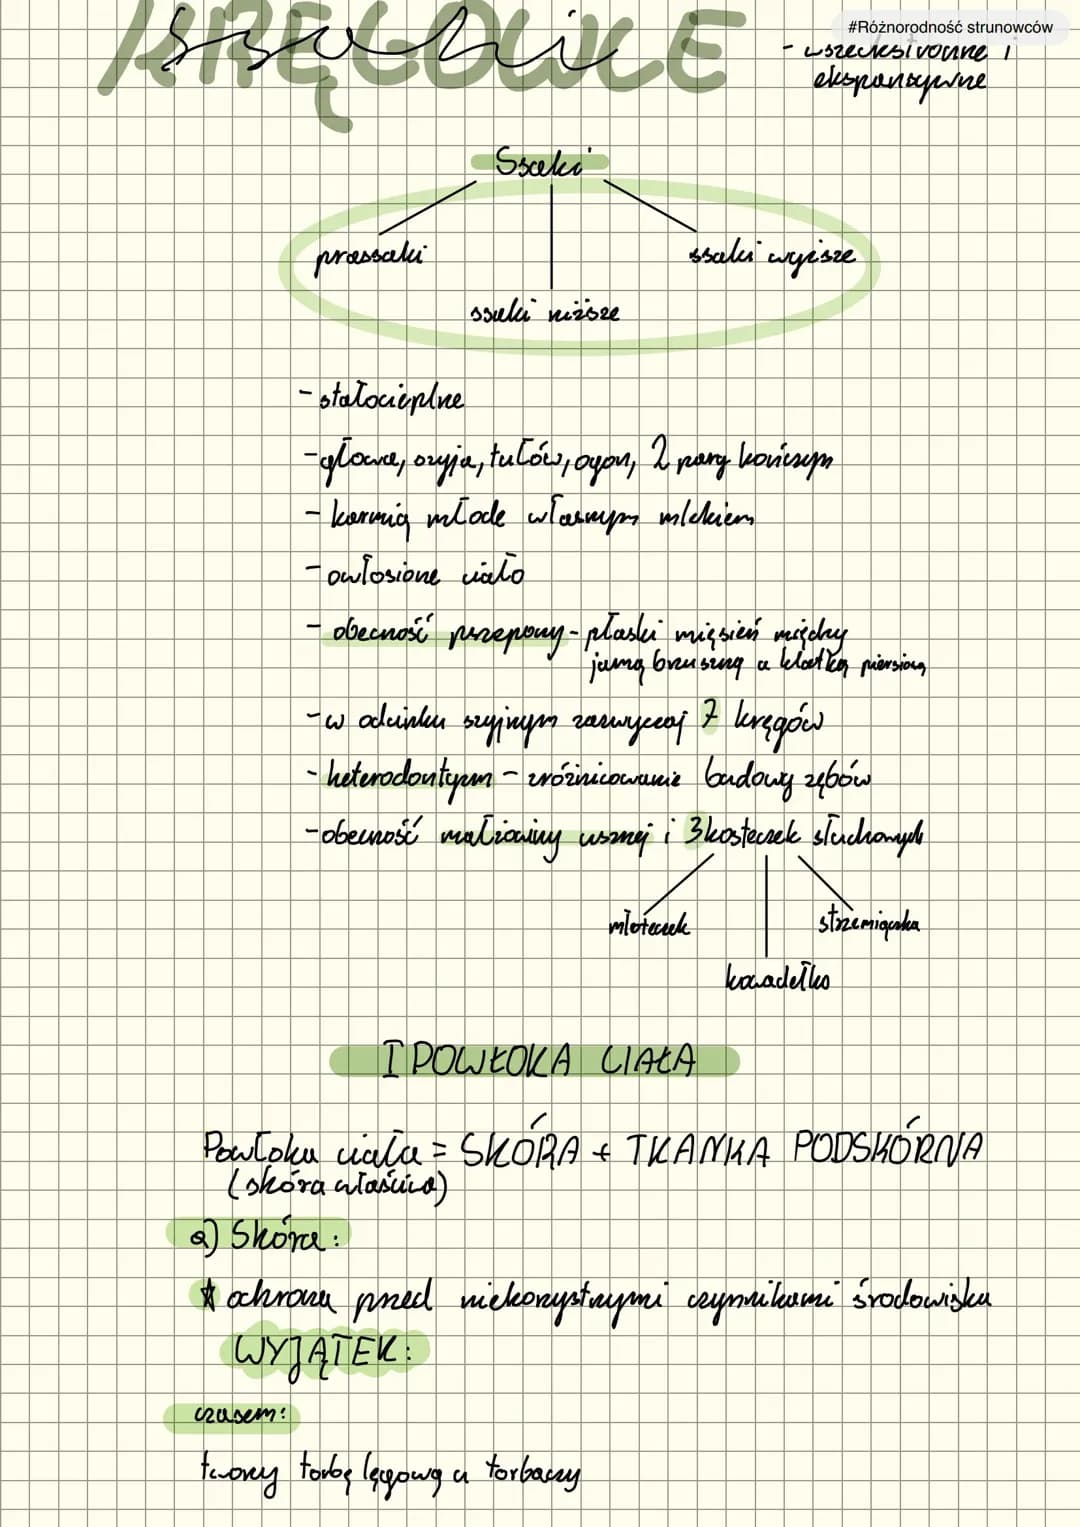 #Różnorodność strunowców
KRĘGOWCE
ssaki
- wszechstronne i
ekspansywne
Ssaki
prassaki
ssaki wyższe
ssaki niższe
- stałocieplne
- głowa, szyja, tułów, ogon, 2 pary kończyn
- karmią młode własnym mlekiem
- owłosione ciało
- obecność przepony - płaski mięsień między
jamą brzuszną a klatką piersiową
- w odcinku szyjnym zazwyczaj 7 kręgów
- heterodontyzm - zróżnicowanie budowy zębów
- obecność małżowiny usznej i 3 kosteczek słuchowych
młoteczek
strzemiączka
kowadełko
I POWŁOKA CIAŁA
Powłoka ciała = SKÓRA + TKANKA PODSKÓRNA
(skóra właściwa)
a) Skóra:
ochrona przed niekorzystnymi czynnikami środowiska
WYJĄTEK:
czasem:
tworzy torbę lęgową u torbaczy